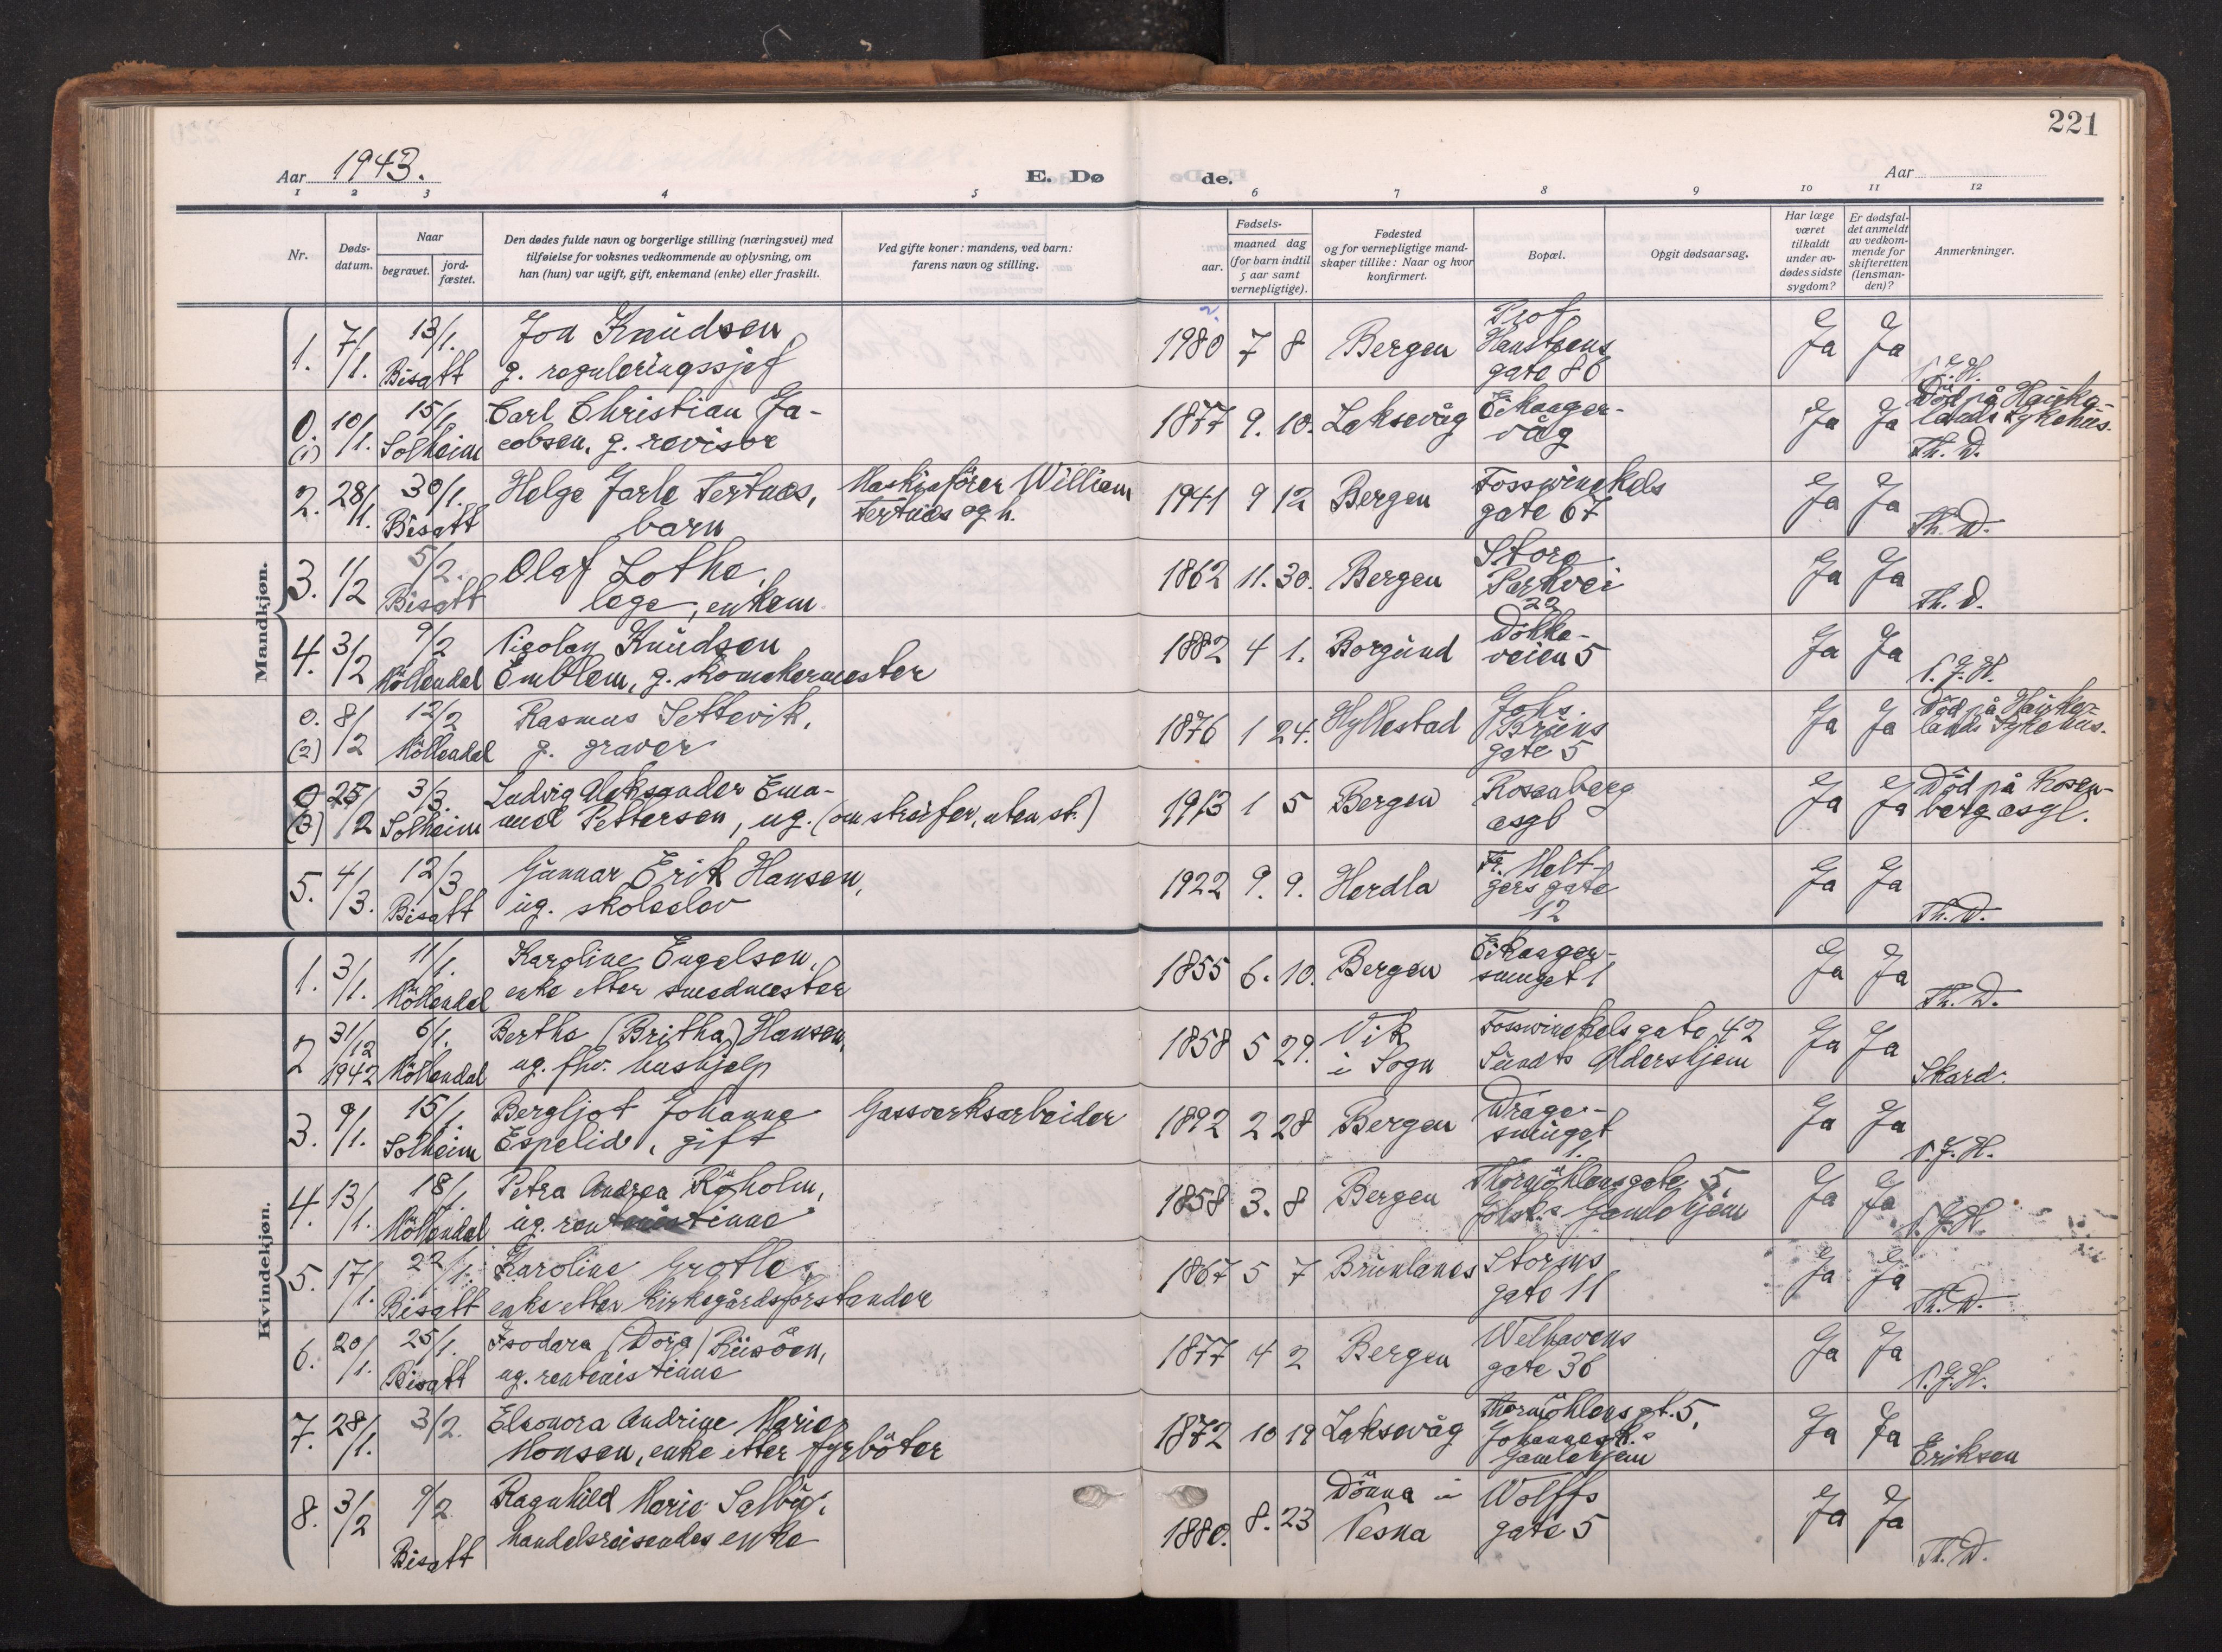 221
Aar 1943.
E. Dø
de.
Aar
1 2 3 4 5 6 7 8 9 10 11 12
Nr.
Døds-
datum.
Naar
begravet.
jord-
fæstet.
Den dødes fulde navn og borgerlige stilling (næringsvei) med
tilføielse for voksnes vedkommende av oplysning, om
han (hun) var ugift, gift, enkemand (enke) eller fraskilt.
Ved gifte koner: mandens, ved barn:
farens navn og stilling.
Fødsels-
aar.
maaned dag
(for barn indtil
5 aar samt
vernepligtige).
Fødested
og for vernepligtige mand-
skaper tillike: Naar og hvor
konfirmert.
Bopæl.
Opgit dødsaarsag.
Har læge
været
tilkaldt
under av-
dødes sidste
sygdom?
Er dødsfal-
det anmeldt
av vedkom-
mende for
skifteretten
(lensman-
den)?
Anmerkninger.
Mandkjøn.
1. 7/1. 13/1. Jon Knudsen 1980 7 8 Bergen Prof. Ja Ja
Bisatt g. reguleringssjef Hansteens
gate 86
0. 10/1. 15/1. Carl Christian Ja- 1877 9. 10. Laksevåg Eikanger- Ja Ja Död på Hauke-
(1) Solheim cobsen, g. revisor våg lands Sykehus.
Th. D.
2. 28/1. 30/1. Helge Jarle Tertnes, Maskinförer William 1941 9 12 Bergen Fosswinckels Ja Ja
Bisatt barn Tertnes og h. gate 67 Th. D.
3. 1/2 5/2. Olaf Lothe, 1862 11. 30. Bergen Store Ja Ja
Bisatt lege, enkem. Parkvei
22 Th. D.
4. 3/2 9/2 Nicolay Knudsen 1882 4 1. Borgund Dokke- Ja Ja
Möllendal Emblem, g. skomakermester veien 5
0. 8/2 12/2 Rasmus Settevik, 1876 1 24. Hyllestad Johs. Ja Ja Död på Hauke-
(2) Möllendal g. graver Bruns lands Sykehus.
gate 5
0 25/2 3/3. Ludvig Aleksander Ema- 1913 1 5 Bergen Rosenberg Ja Ja Död på Rosen-
(3) Solheim nuel Pettersen, ug. (omstreifer, uten st.) asyl berg asyl.
5. 4/3. 12/3 Gunnar Erik Hansen, 1922 9. 9. Herdla Fr. Melt- Ja Ja
Bisatt ug. skoleelev zers gate
12 Th. D.
Kvindekjøn.
1. 3/1. 11/1. Karoline Engelsen, 1855 6. 10. Bergen Eikanger- Ja Ja
Möllendal enke etter smedmester smuget 1 Th. D.
2 31/12 6/1. Bertha (Britha) Hansen, 1858 5 29. Vik Fosswinckels gate 42 Ja Ja
1942 Möllendal ug. fhv. hushjelp i Sogn Sundts Aldershjem Skard.
3. 9/1. 15/1. Bergljot Johanne Gassverksarbeider 1892 2 28 Bergen Drage- Ja Ja
Solheim Espelid, gift smuget
4. 13/1. 18/1. Petra Andrea Röholm, 1858 3. 8 Bergen Thormöhlensgate 5, Ja Ja
Möllendal ug. rentenistinne Gamlehjem
5. 17/1. 22/1. Karoline Grotle, 1867 5 7 Brunlanes Storms Ja Ja
Bisatt enke etter kirkegårdsforstander gate 11 Th. D.
6. 20/1. 25/1. Isodora (Dora) Riisöen, 1877 4 2 Bergen Welhavens Ja Ja
Bisatt ug. rentenistinne gate 36
7. 28/1. 3/2. Eleonora Andrine Marie 1872 10 19 Laksevåg Thormöhlens gt. 5, Ja Ja
Monsen, enke etter fyrböter Johannesk.s
Gamlehjem Eriksen
8. 3/2 9/2 Ragnhild Marie Salbu, 1880. 8. 23 Dönna i Wolffs Ja Ja
Bisatt handelsreisendes enke Nesna gate 5 Th. D.